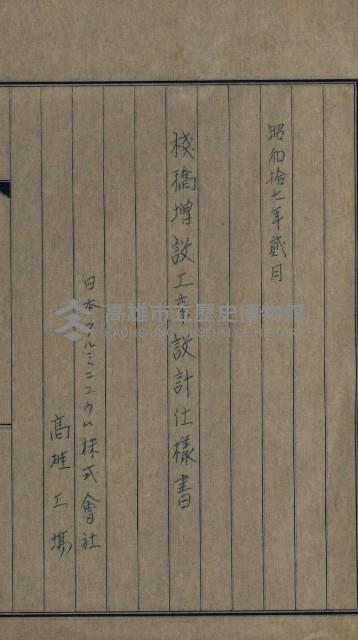 昭和拾七年貳月
棧橋增設工事設計仕樣書
日本アルミニユウム株式會社
高雄工場
高雄市立歷史博物館
KAOHSIUNG MUSEUM OF HISTORY